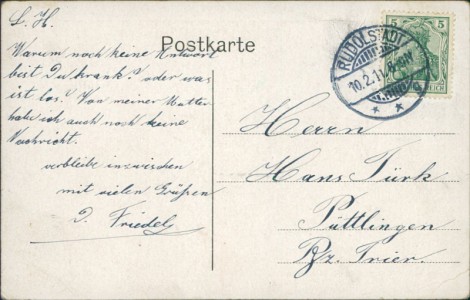 L. H.
Postkarte
Warum noch keine Antwort
bist Du krank? oder was
ist los? Von meiner Mutter
habe ich auch noch keine
Nachricht.
verbleibe inzwischen
mit vielen Grüßen
D. Friedel
RUDOLSTADT
10.2.11
5 5
Herrn
Hans Türk
Püttlingen
Bz. Trier.